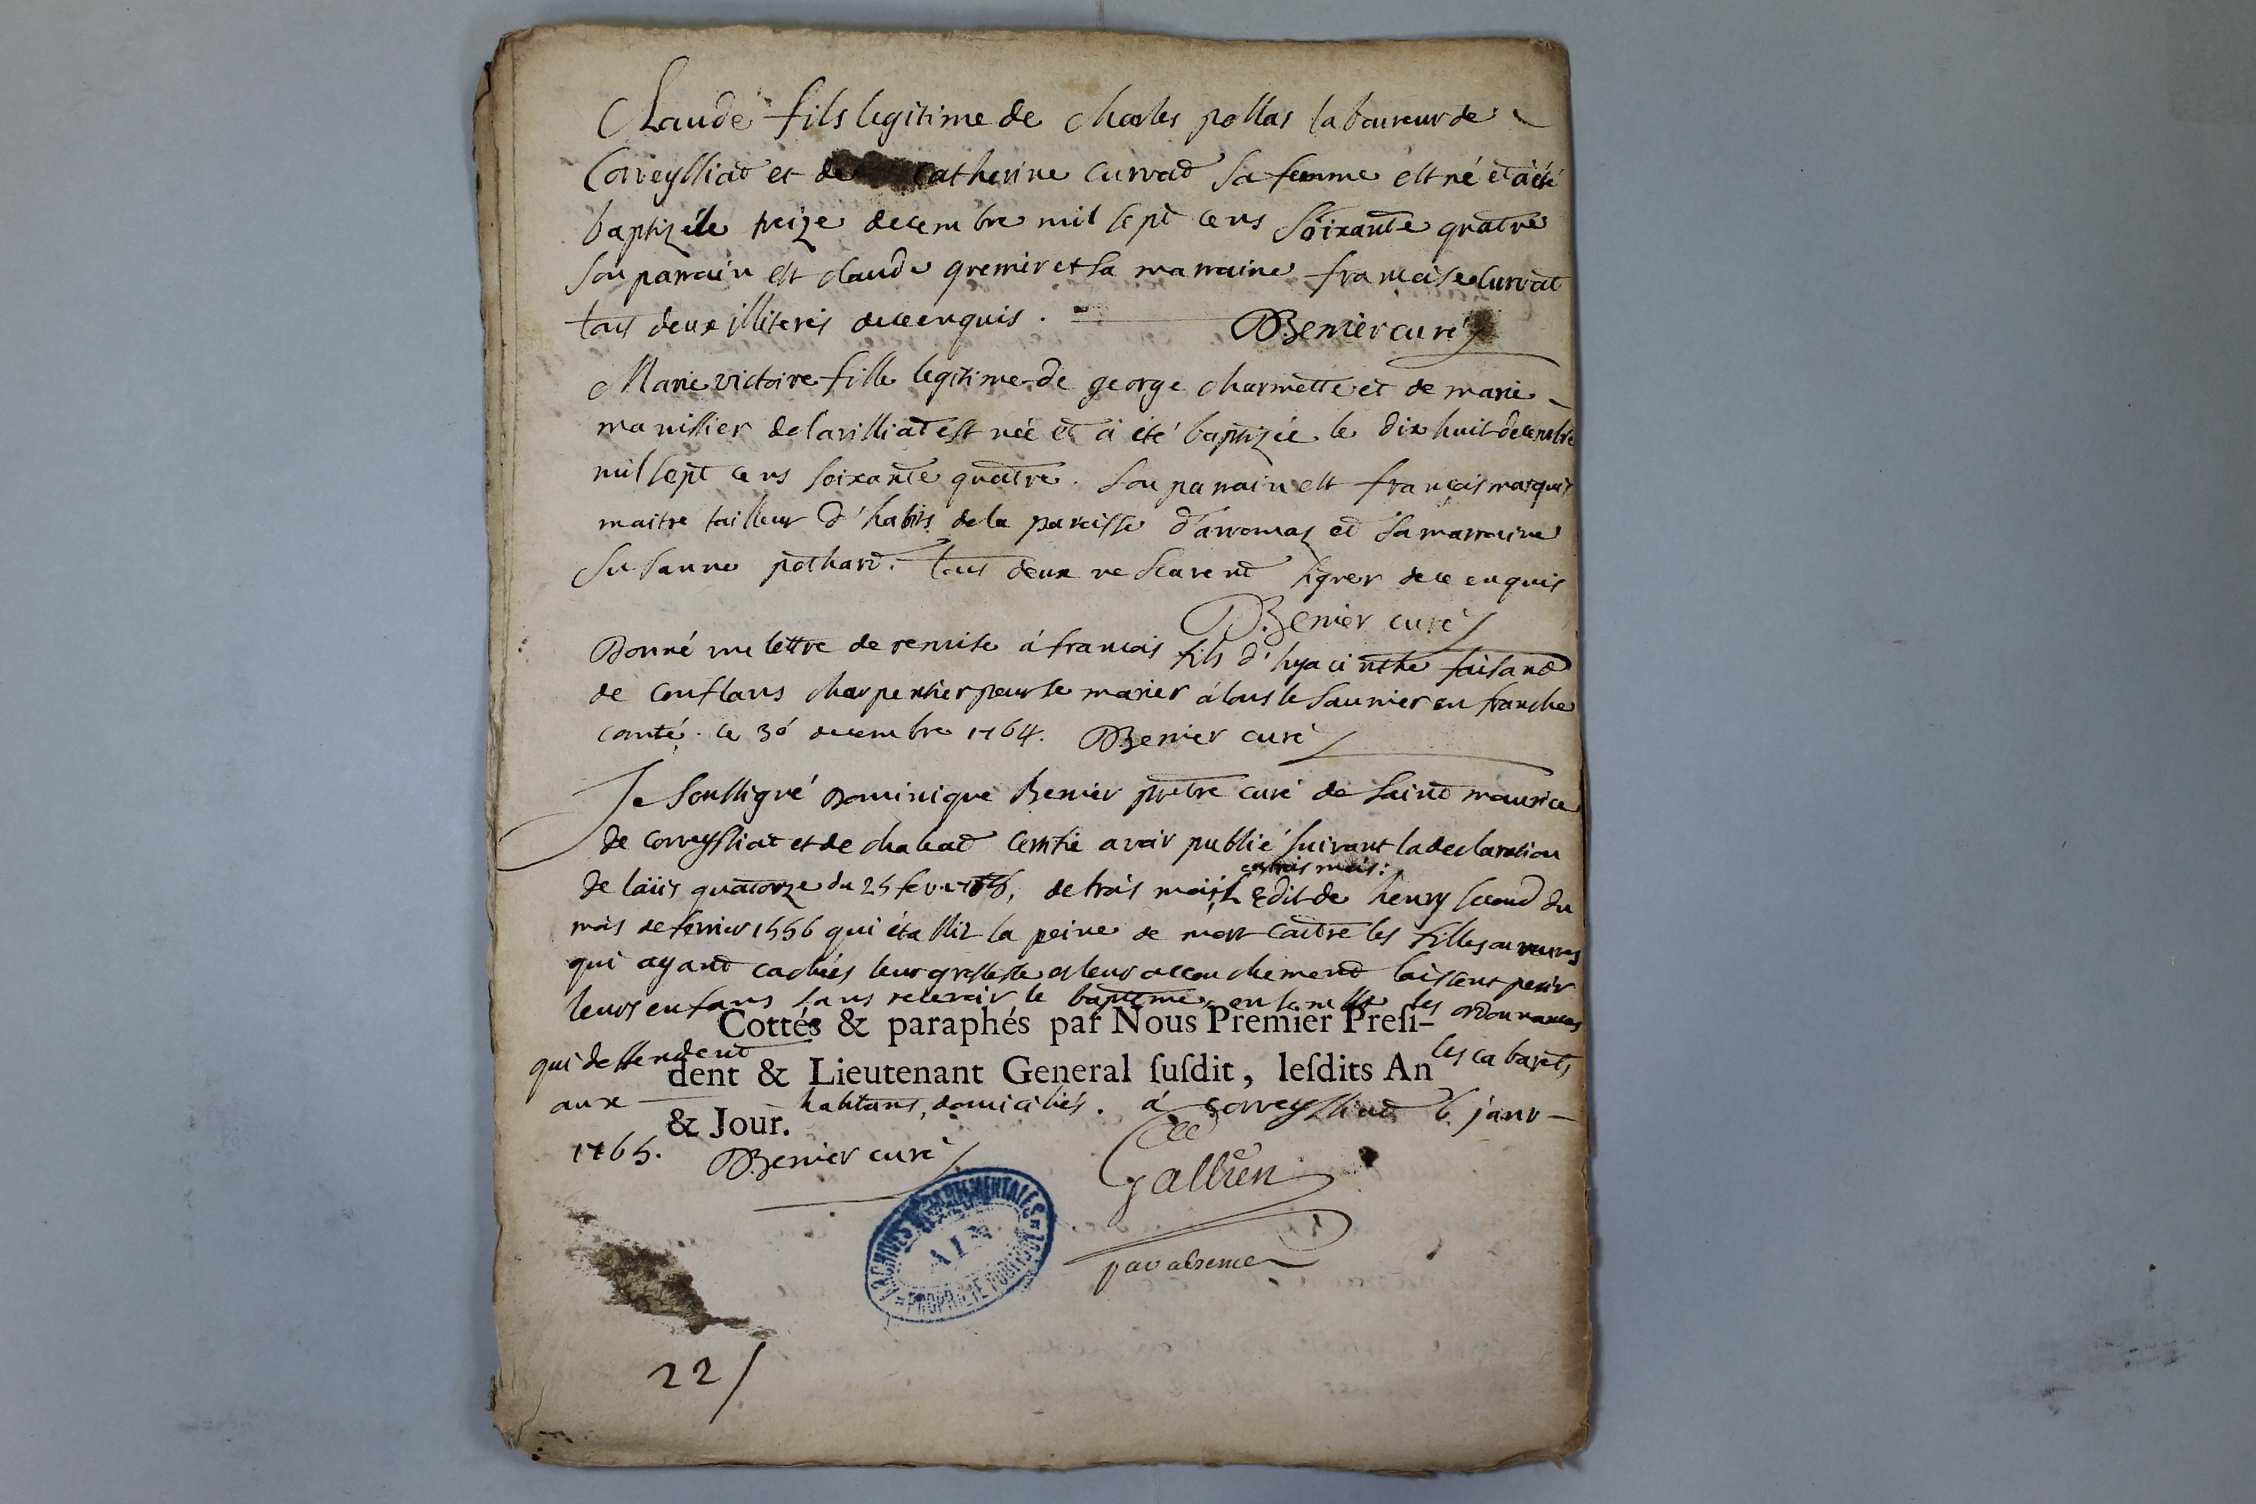 Claude fils legitime de charles pollas laboureur de
Corveyssiat et de catherine curvat sa femme est né et a été
baptizé le treize decembre mil sept cens soixante quatre
son parrain est claude grenier et sa marraine francoise Curvat
tous deux illiterés de ce enquis.
D. Benier curé
Marie victoire fille legitime de george charmette et de marie
manissier de lavilliat est née et a été baptizée le dix huit decembre
mil sept cens soixante quatre. son parrain est françois marquis
maitre tailleur d'habits de la paroisse d'aromas et sa marraine
susanne pochard. tous deux ne scavent signer de ce enquis
D. Benier curé
Donné une lettre de remise á francois fils d'hyacinthe faisand
de conflans charpentier pour se marier á lons le saunier en franche
comté. ce 30 decembre 1764. D. Benier curé
Je soussigné dominique Benier prêtre curé de saint maurice
de corveyssiat et de chaleat certifie avoir publié suivant la declaration
en trois mois:
de loüis quatorze du 25 fevr. de trois mois L'edit de henry second du
mois de fevrier 1556 qui établit la peine de mort contre les filles ou veuves
qui ayant cachées leur grossesse et leur accouchement laissent perir
leurs enfans sans recevoir le baptême, ensemble les ordonnances
Cottés & paraphés par Nous Premier Presi-
qui deffendent les cabarets
dent & Lieutenant General susdit, lesdits An
aux habitans domiciliés. á corveyssiat 6 janv
& Jour.
1765. D. Benier curé
Gallien
par absence
ARCHIVES DEPARTEMENTALES
AIN
PROPRIETE PUBLIQUE
22